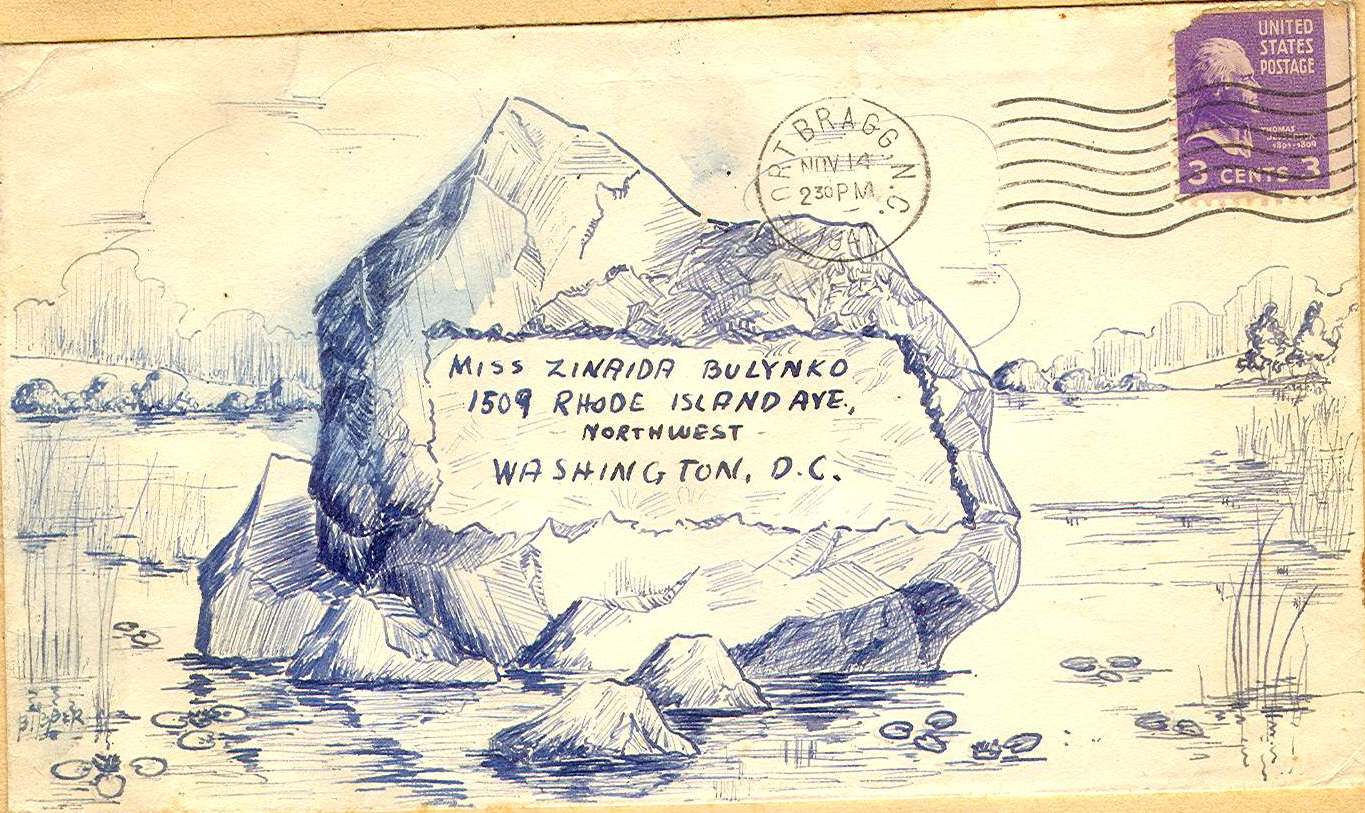 UNITED
STATES
POSTAGE
THOMAS
1801-1809
3 CENTS 3
FORT BRAGG, N.C.
NOV 14
230 PM
1941
MISS ZINAIDA BULYNKO
1509 RHODE ISLAND AVE.,
NORTHWEST
WASHINGTON, D.C.
BIBBER